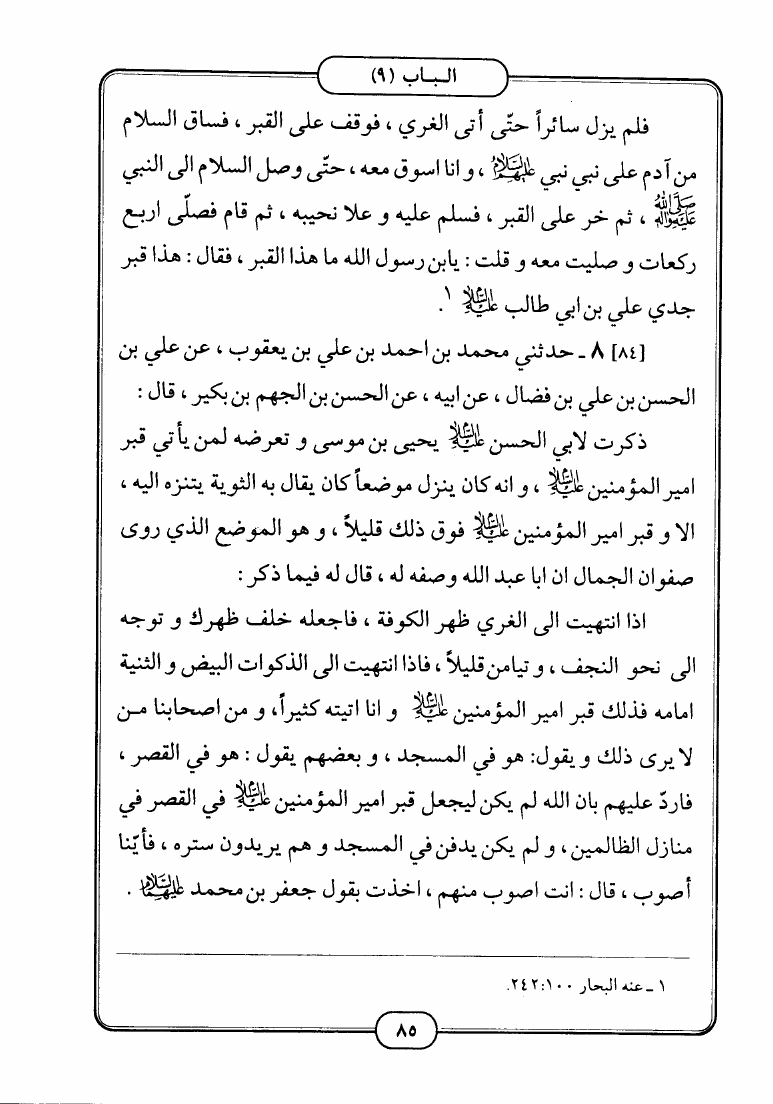 الباب (٩)
فلم يزل سائراً حتّى أتى الغري ، فوقف على القبر ، فساق السلام
من آدم على نبي نبي عليهم السلام ، و انا اسوق معه ، حتّى وصل السلام الى النبي
صلى الله عليه وآله ، ثم خر على القبر ، فسلم عليه و علا نحيبه ، ثم قام فصلّى اربع
ركعات و صليت معه و قلت : يابن رسول الله ما هذا القبر ، فقال : هذا قبر
جدي علي بن ابي طالب عليه السلام ١ .
[٨٤] ٨ ـ حدثني محمد بن احمد بن علي بن يعقوب ، عن علي بن
الحسن بن علي بن فضال ، عن ابيه ، عن الحسن بن الجهم بن بكير ، قال :
ذكرت لابي الحسن عليه السلام يحيى بن موسى و تعرضه لمن يأتي قبر
امير المؤمنين عليه السلام ، و انه كان ينزل موضعاً كان يقال به الثوية يتنزه اليه ،
الا و قبر امير المؤمنين عليه السلام فوق ذلك قليلاً ، و هو الموضع الذي روى
صفوان الجمال ان ابا عبد الله وصفه له ، قال له فيما ذكر :
اذا انتهيت الى الغري ظهر الكوفة ، فاجعله خلف ظهرك و توجه
الى نحو النجف ، و تيامن قليلاً ، فاذا انتهيت الى الذكوات البيض و الثنية
امامه فذلك قبر امير المؤمنين عليه السلام و انا اتيته كثيراً، و من اصحابنا مـن
لا يرى ذلك و يقول: هو في المسجد ، و بعضهم يقول : هو في القصر ،
فاردّ عليهم بان الله لم يكن ليجعل قبر امير المؤمنين عليه السلام في القصر في
منازل الظالمين ، و لم يكن يدفن في المسجد و هم يريدون ستره ، فأيّنا
أصوب ، قال : انت اصوب منهم ، اخذت بقول جعفر بن محمد عليهما السلام .
١ ـ عنه البحار ١٠٠:٢٤٢.
٨٥